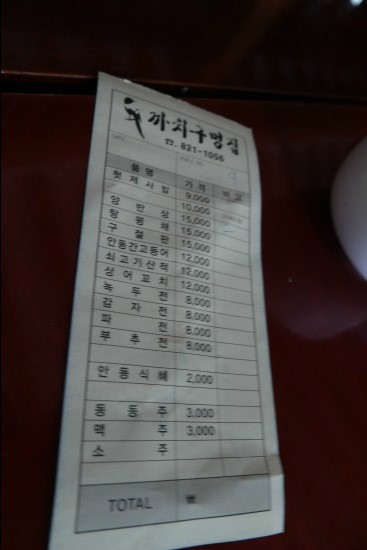 까치구멍집
☎. 821-1056
품명 가격 비고
헛제사밥 9,000
양반상 10,000
탕평채 15,000
구절판 15,000
안동간고등어 12,000
쇠고기산적 12,000
상어꼬치 12,000
녹두전 8,000
감자전 8,000
파전 8,000
부추전 8,000
안동식혜 2,000
동동주 3,000
맥주 3,000
소주
TOTAL ₩